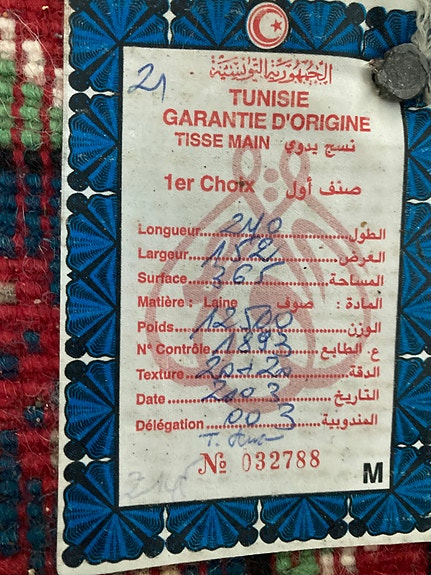 21
الجمهورية التونسية
TUNISIE
GARANTIE D'ORIGINE
TISSE MAIN نسج يدوي
1er Choix صنف أول
Longueur 240 الطول
Largeur 152 العرض
Surface 365 المساحة
Matière : Laine صوف : المادة
Poids 12500 الوزن
N° Contrôle 1893 ع. الطابع
Texture 20+20 الدقة
Date التاريخ
Délégation 003 المندوبية
№ 032788
M